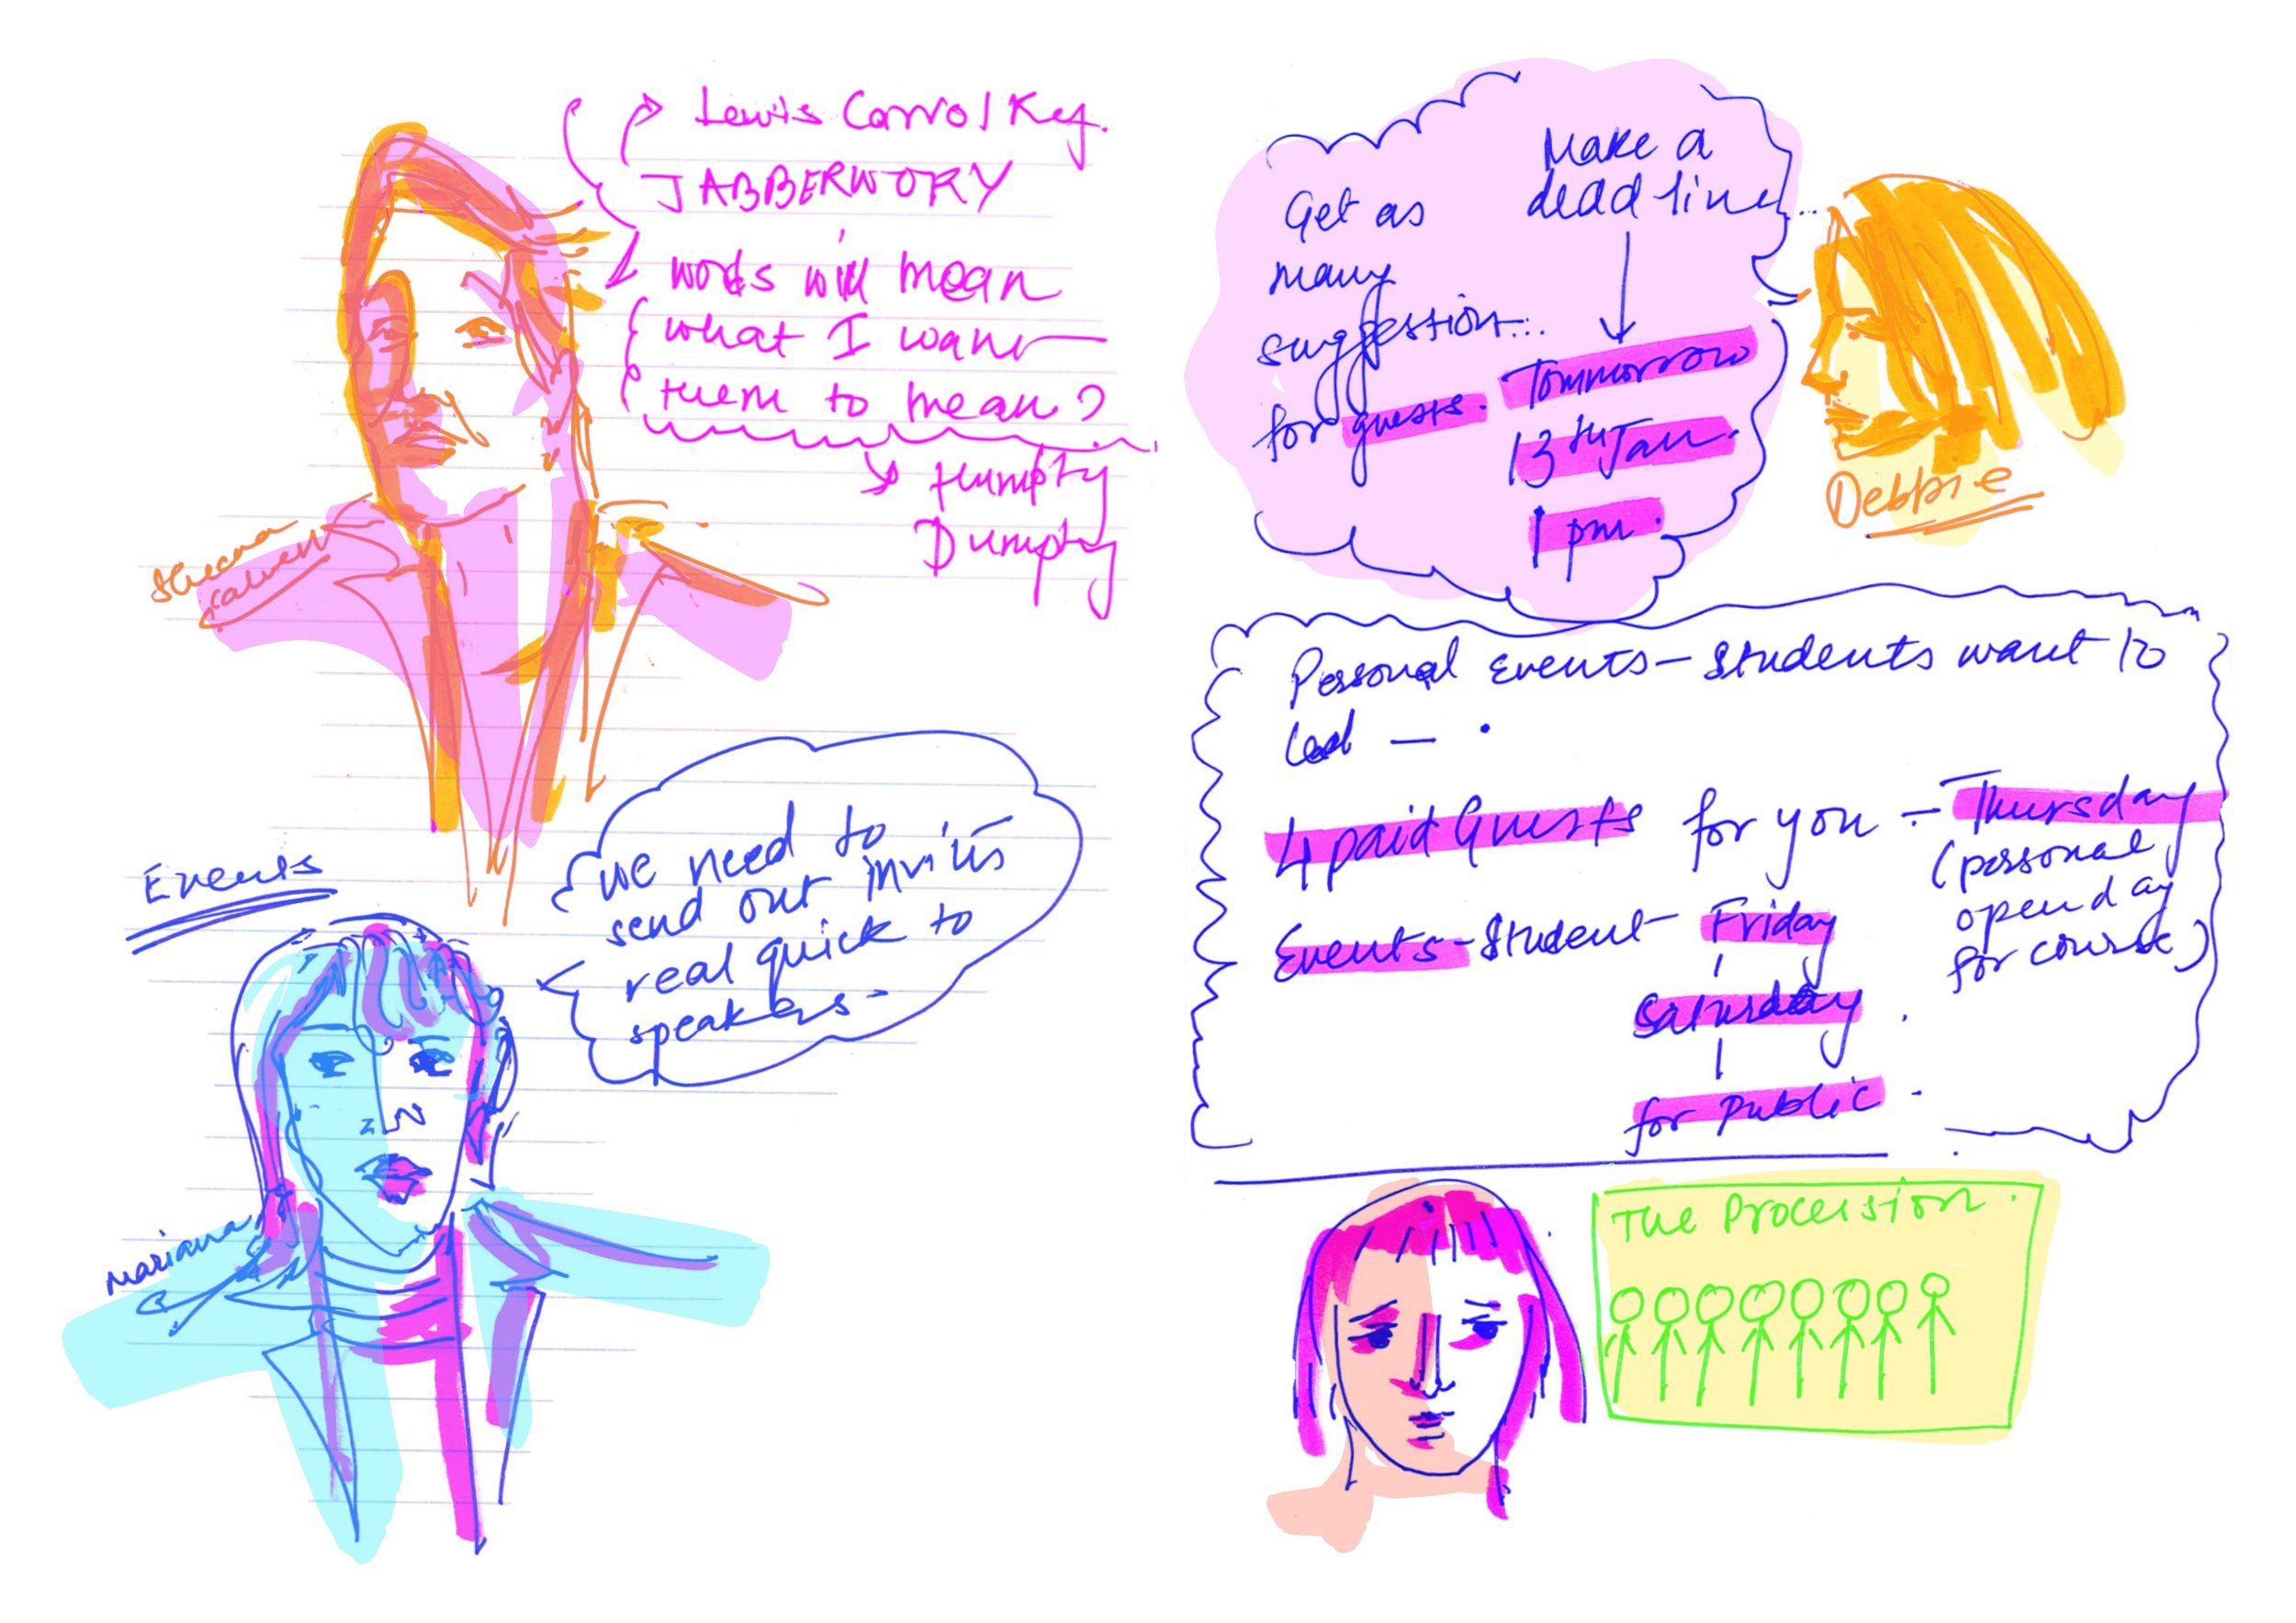 Lewis Carrol Key.
JABBERWORY
words will mean
what I want
them to mean?
Humpty
Dumpty
Sheena
Calvert
Events
we need to
send out invits
real quick to
speakers
Mariana
Make a
deadline...
Get as
many
suggestion...
for guests.
Tommorrow
13th Jan.
1 pm.
Debbie
Personal Events - Students want to
lead -
4 paid Guests for you - Thursday
(personal
open day
for course)
Events - Student - Friday
Saturday
for public.
The Procession.